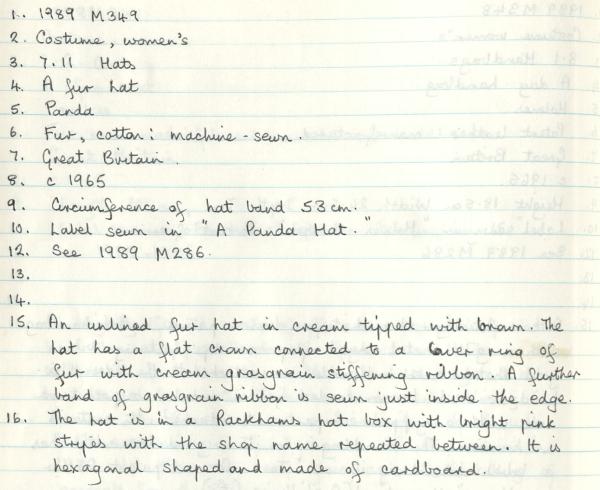 1. 1989 M349
2. Costume, women's
3. 7.11 Hats
4. A fur hat
5. Panda
6. Fur, cotton: machine-sewn.
7. Great Britain.
8. c 1965
9. Circumference of hat band 53cm.
10. Label sewn in "A Panda Hat."
12. See 1989 M286.
13.
14.
15. An unlined fur hat in cream tipped with brown. The
hat has a flat crown connected to a lower ring of
fur with cream grosgrain stiffening ribbon. A further
band of grosgrain ribbon is sewn just inside the edge.
16. The hat is in a Rackhams hat box with bright pink
stripes with the shop name repeated between. It is
hexagonal shaped and made of cardboard.